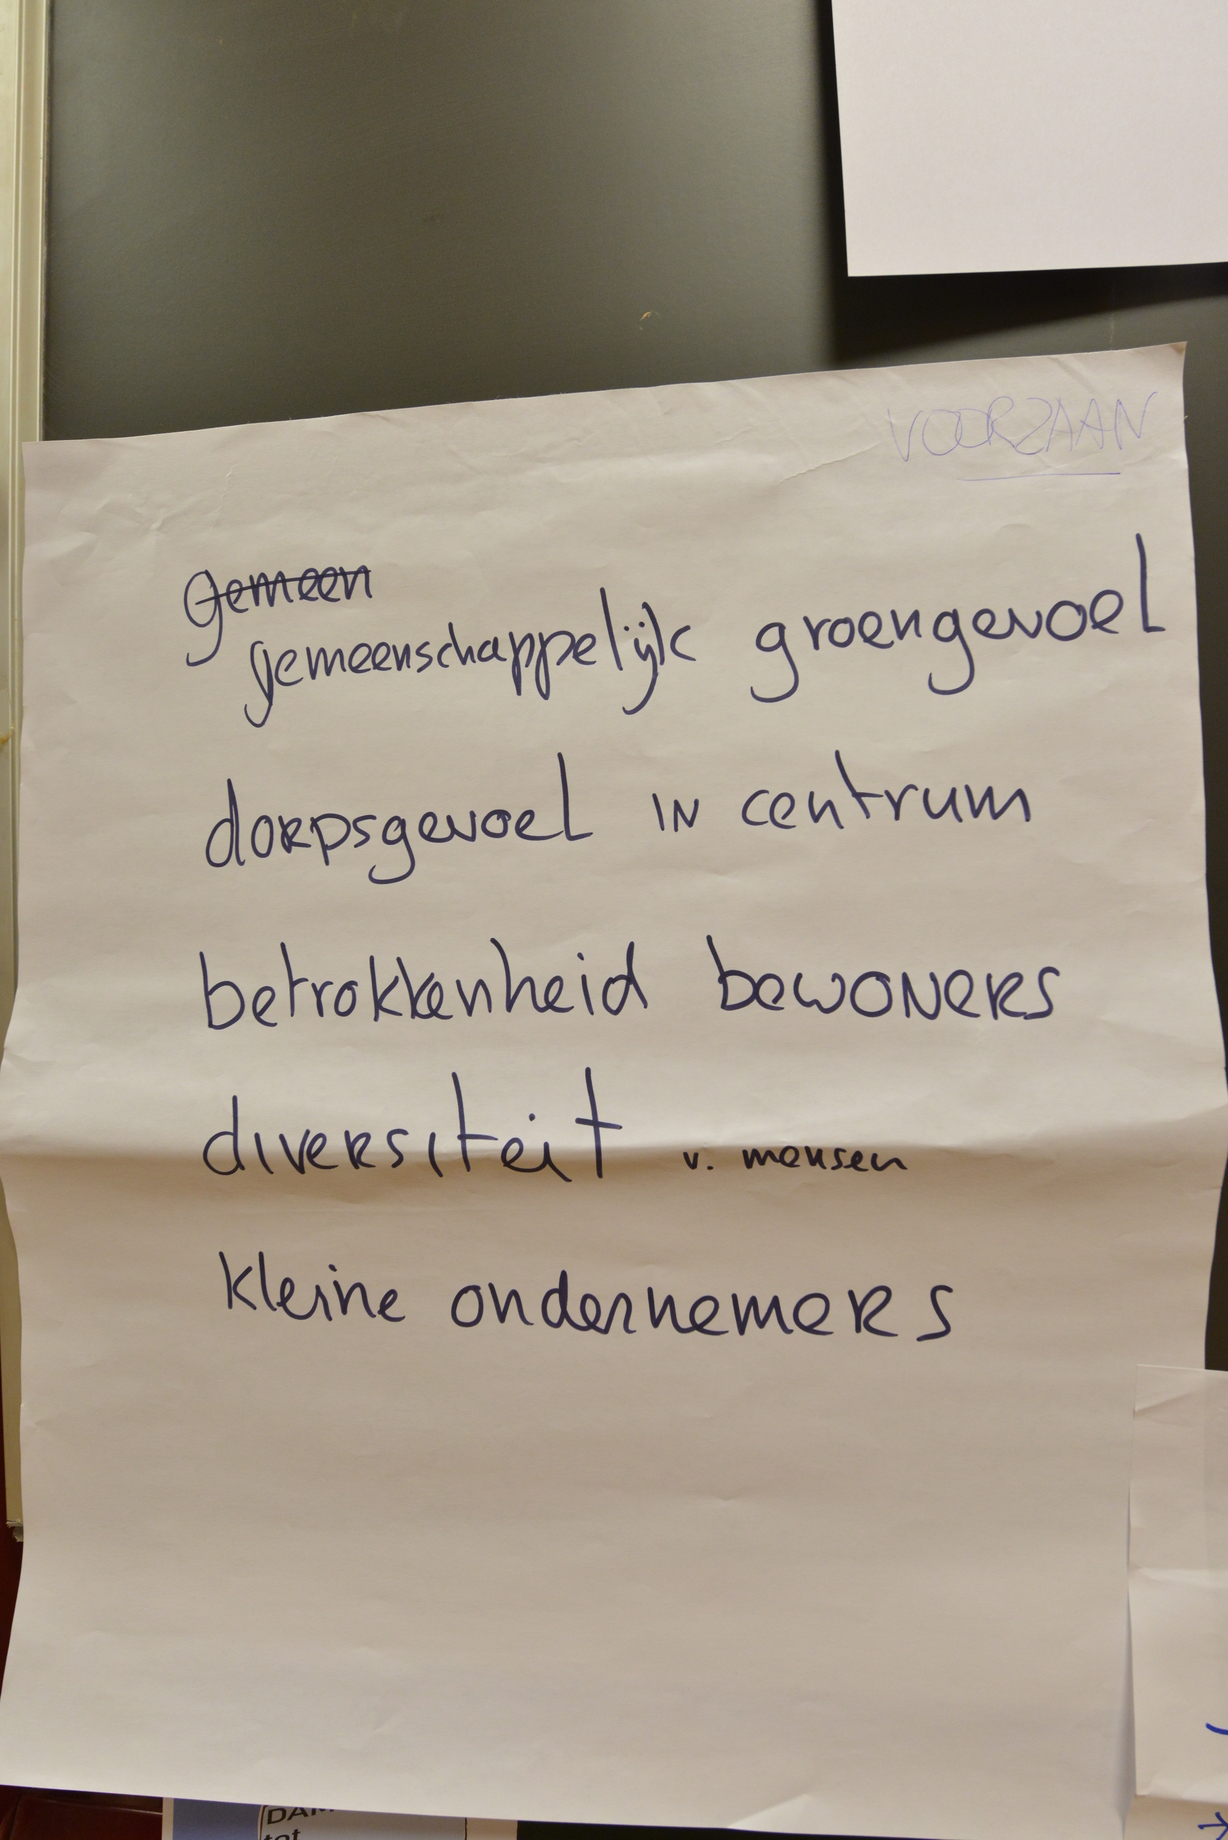 VOORZAAN
gemeen
gemeenschappelijk groengevoel
dorpsgevoel in centrum
betrokkenheid bewoners
diversiteit v. mensen
kleine ondernemers
tot